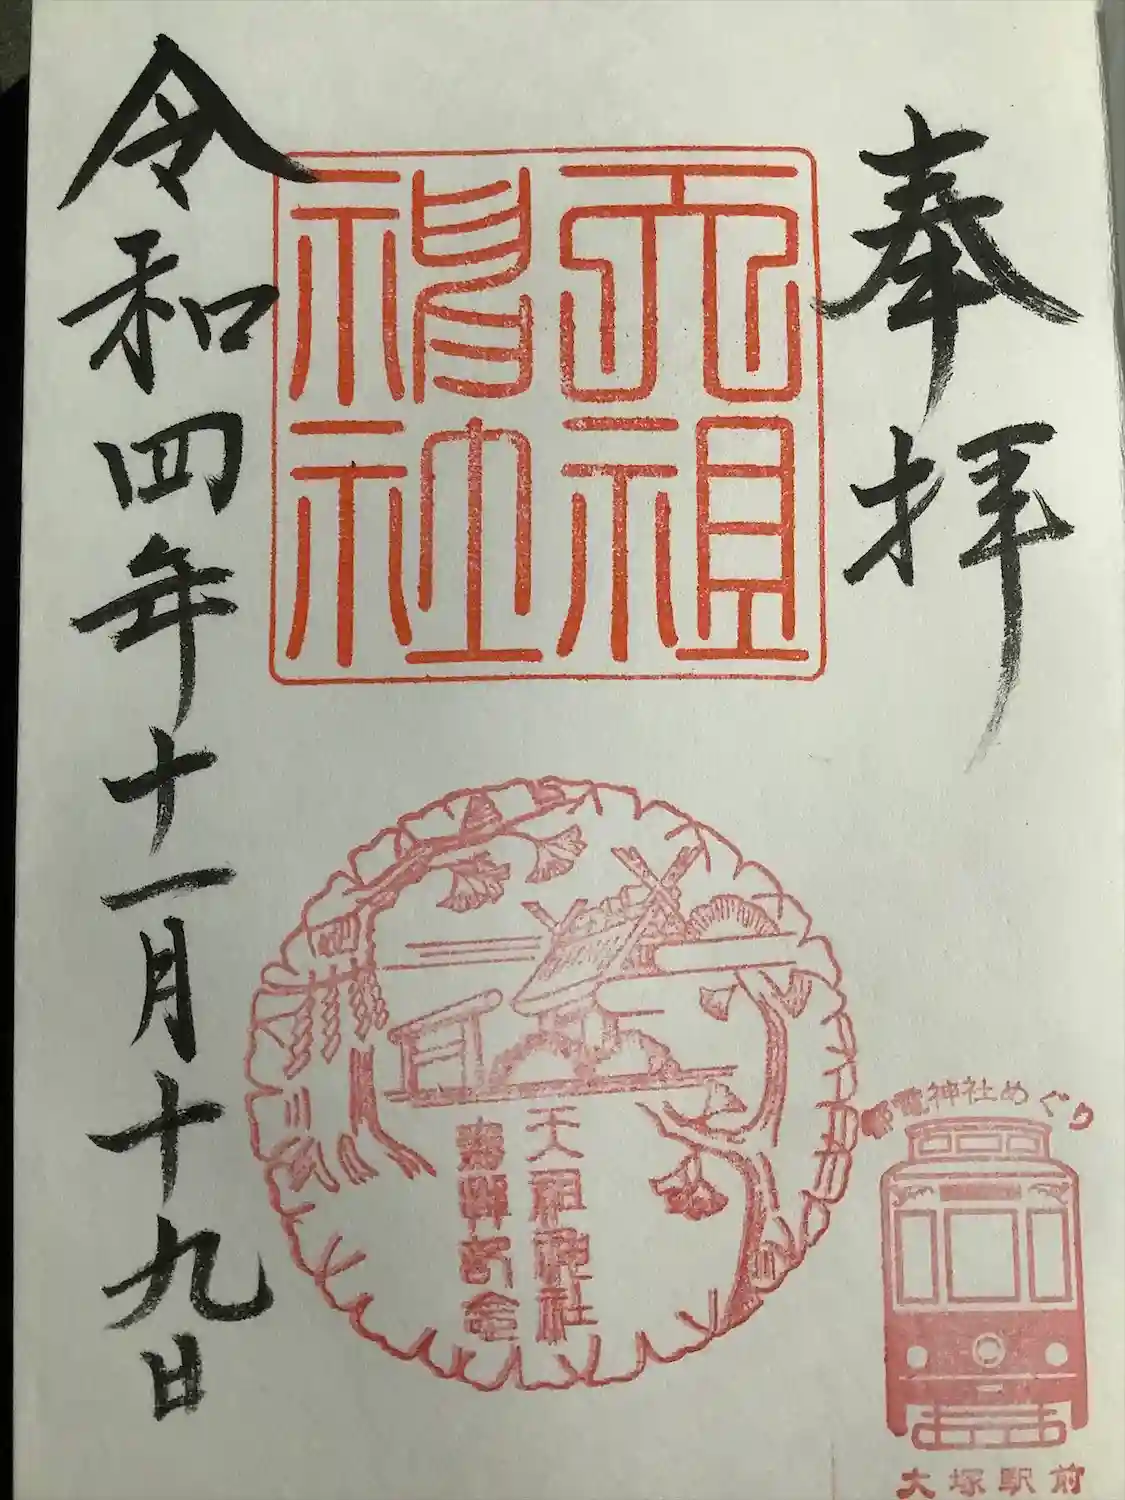 奉拝
天祖神社
令和四年十一月十九日
天祖神社
参拝記念
都電神社めぐり
大塚駅前